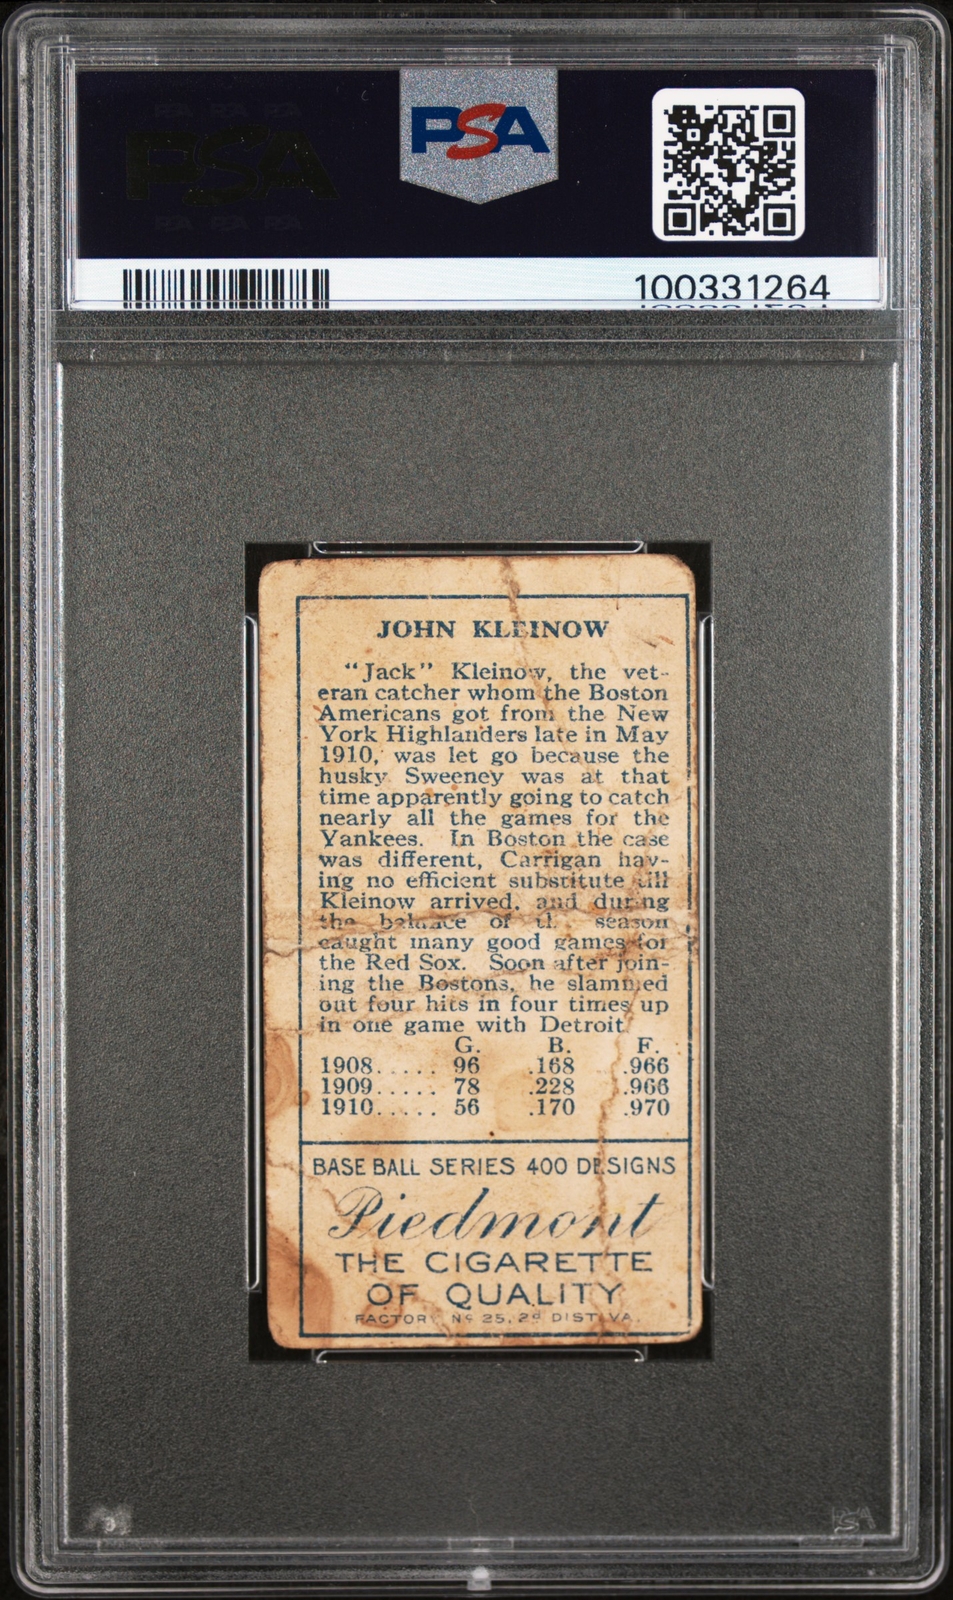 PSA
100331264
JOHN KLEINOW
"Jack" Kleinow, the vet-
eran catcher whom the Boston
Americans got from the New
York Highlanders late in May
1910, was let go because the
husky Sweeney was at that
time apparently going to catch
nearly all the games for the
Yankees. In Boston the case
was different, Carrigan hav-
ing no efficient substitute till
Kleinow arrived, and during
the balance of the season
caught many good games for
the Red Sox. Soon after join-
ing the Bostons, he slammed
out four hits in four times up
in one game with Detroit.
G. B. F.
1908..... 96 .168 .966
1909..... 78 .228 .966
1910..... 56 .170 .970
BASE BALL SERIES 400 DESIGNS
Piedmont
THE CIGARETTE
OF QUALITY
FACTORY Nº 25, 2ᵈ DIST. VA.